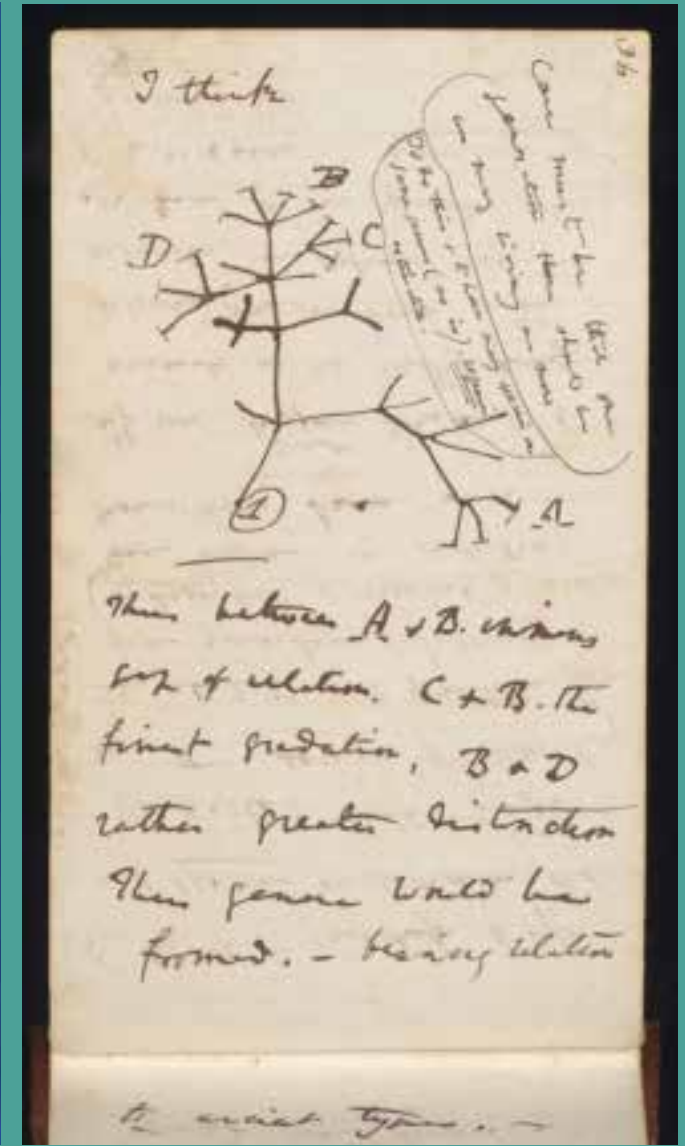 36
I think
Case must be that one
generation then should be
as many living as now
To do this & to have many species in
same genus (as is) requires
extinction
B
C
D
1
A
Thus between A & B. immens
gap of relation. C & B. the
finest gradation, B & D
rather greater distinction
Thus genera would be
formed. — bearing relation
to ancient types. —